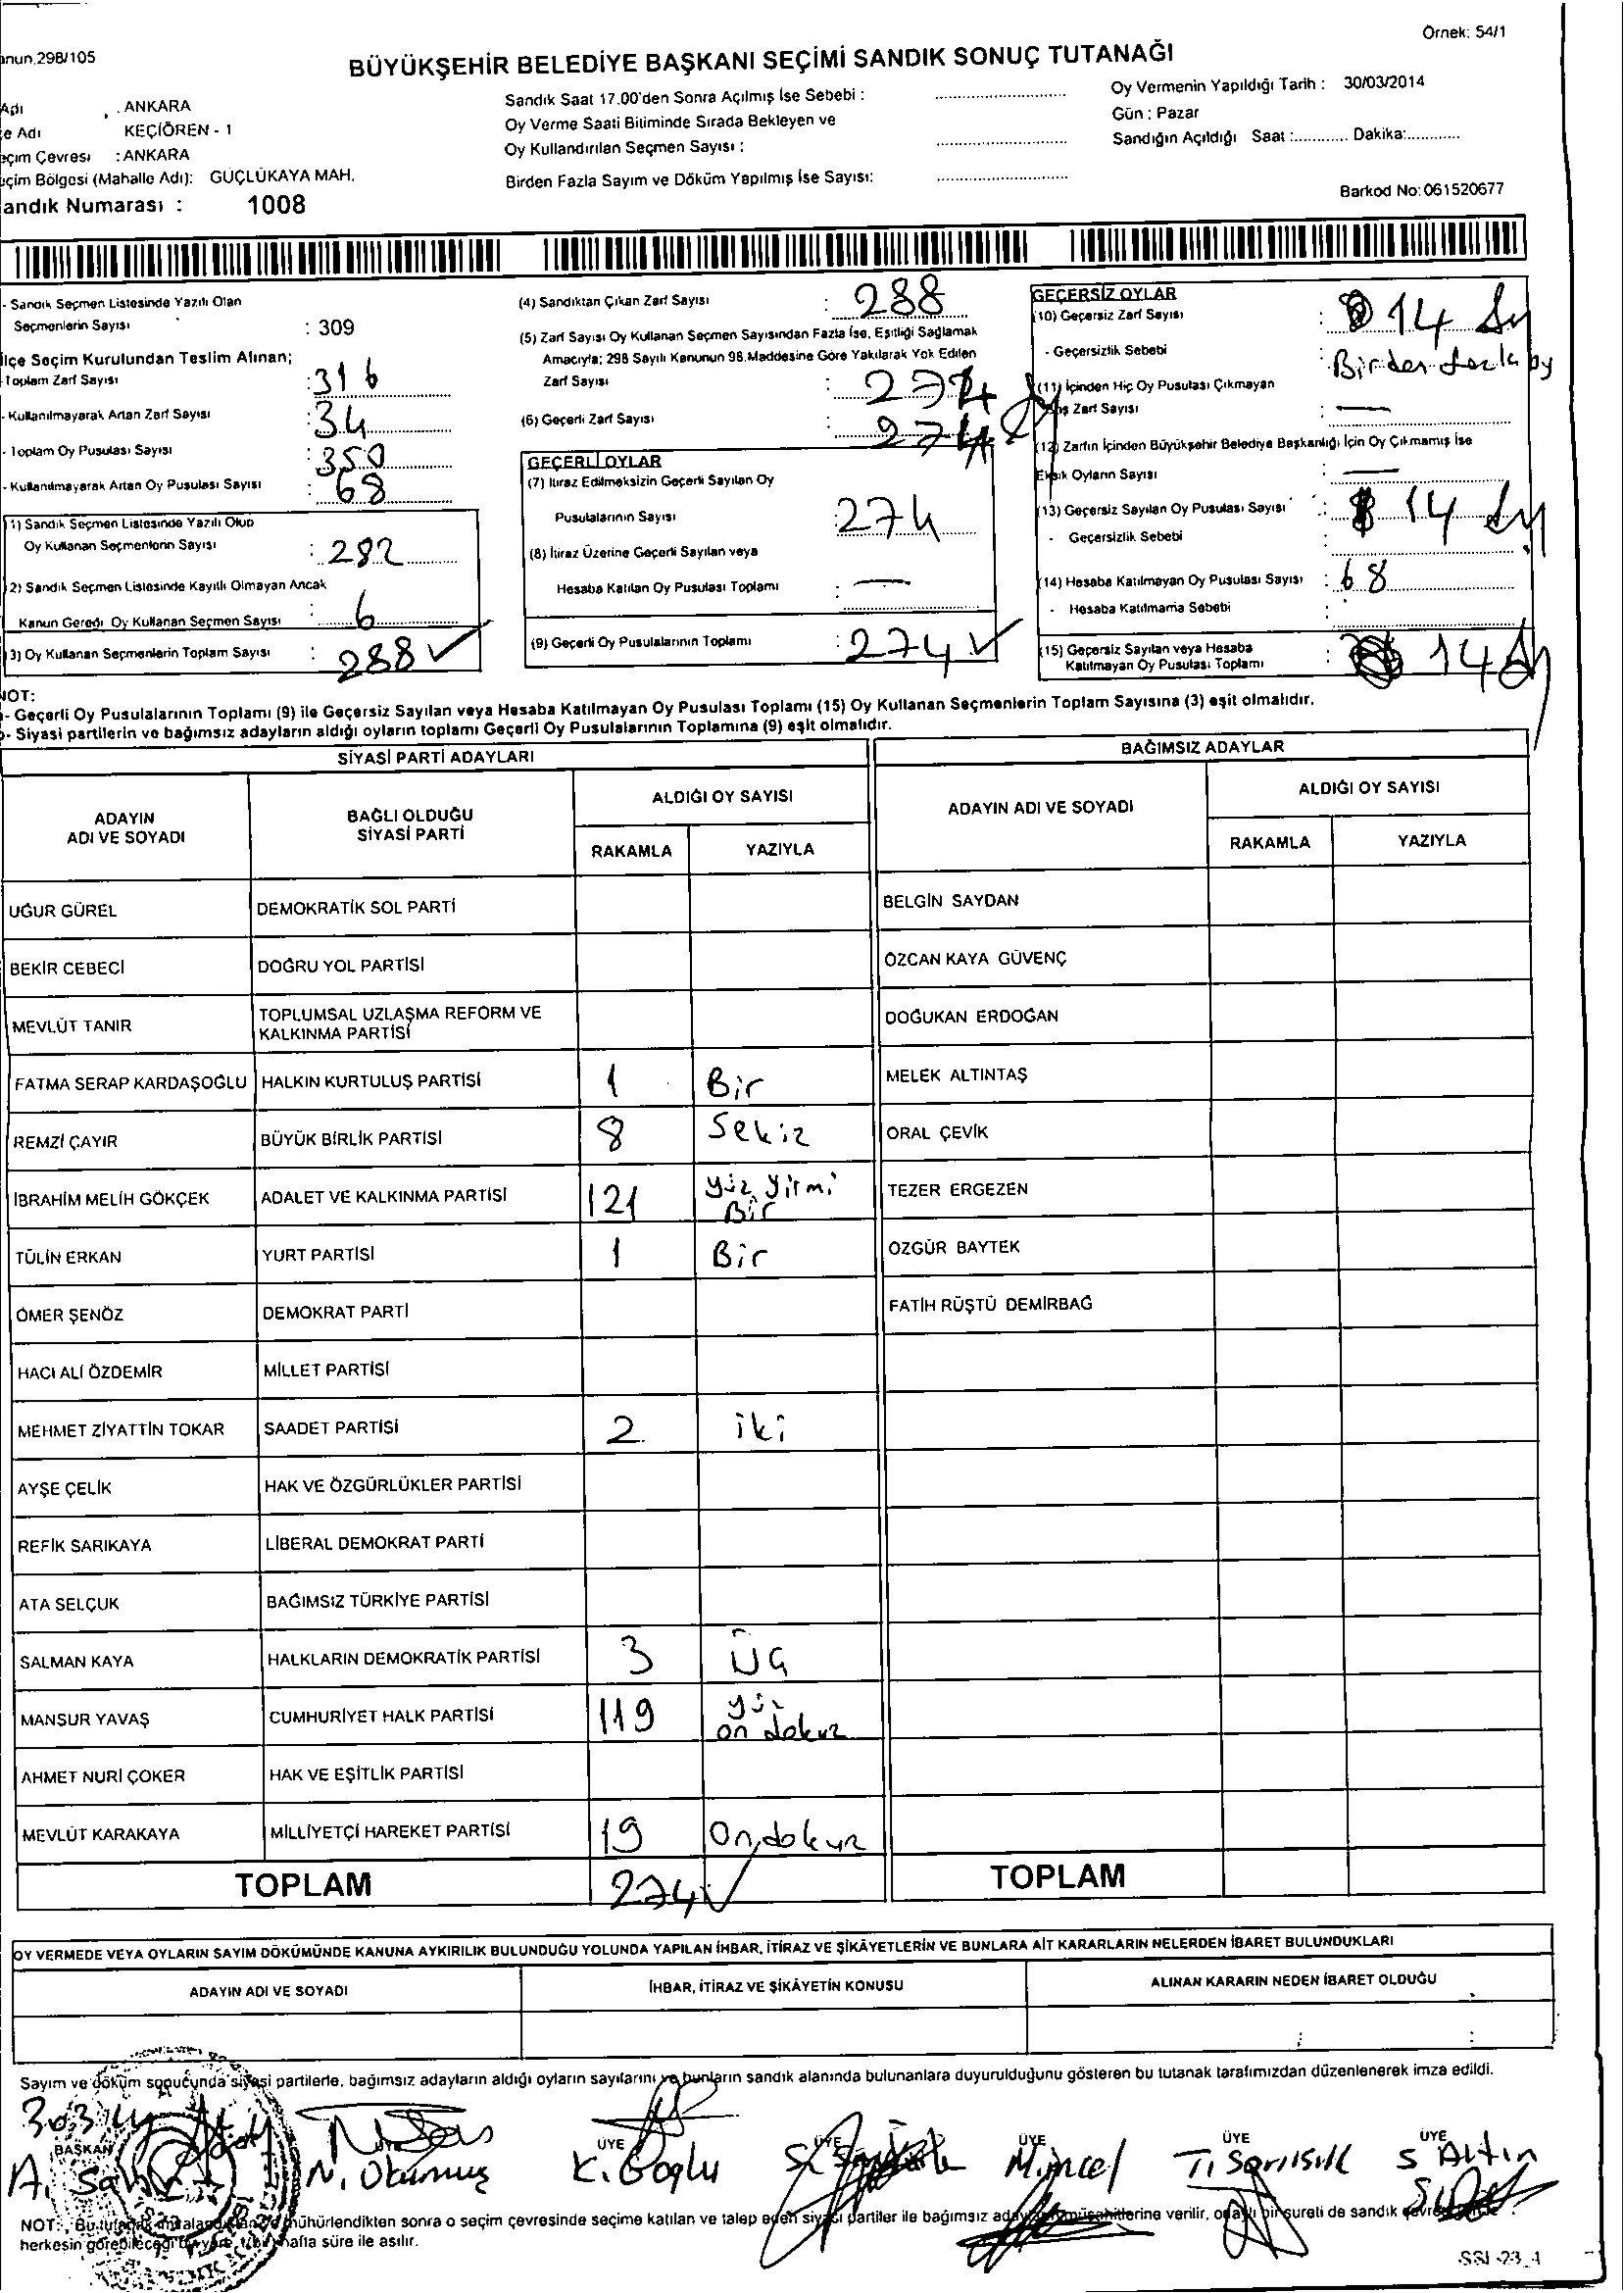 Örnek: 54/1
anun.298/105
BÜYÜKŞEHİR BELEDİYE BAŞKANI SEÇİMİ SANDIK SONUÇ TUTANAĞI
Adı : ANKARA
e Adı KEÇİÖREN - 1
eçim Çevresi : ANKARA
eçim Bölgesi (Mahalle Adı): GÜÇLÜKAYA MAH.
andık Numarası : 1008
Sandık Saat 17.00'den Sonra Açılmış İse Sebebi :
Oy Verme Saati Bitiminde Sırada Bekleyen ve
Oy Kullandırılan Seçmen Sayısı :
Birden Fazla Sayım ve Döküm Yapılmış İse Sayısı:
Oy Vermenin Yapıldığı Tarih : 30/03/2014
Gün : Pazar
Sandığın Açıldığı Saat :............ Dakika:............
Barkod No: 061520677
- Sandık Seçmen Listesinde Yazılı Olan
Seçmenlerin Sayısı : 309
İlçe Seçim Kurulundan Teslim Alınan;
Toplam Zarf Sayısı : 316
- Kullanılmayarak Artan Zarf Sayısı : 34
- Toplam Oy Pusulası Sayısı : 350
- Kullanılmayarak Artan Oy Pusulası Sayısı : 68
1) Sandık Seçmen Listesinde Yazılı Olup
Oy Kullanan Seçmenlerin Sayısı : 282
2) Sandık Seçmen Listesinde Kayıtlı Olmayan Ancak
Kanun Gereği Oy Kullanan Seçmen Sayısı : 6
3) Oy Kullanan Seçmenlerin Toplam Sayısı : 288 ✓
(4) Sandıktan Çıkan Zarf Sayısı : 288
(5) Zarf Sayısı Oy Kullanan Seçmen Sayısından Fazla İse, Eşitliği Sağlamak
Amacıyla; 298 Sayılı Kanunun 98.Maddesine Göre Yakılarak Yok Edilen
Zarf Sayısı : 274
(6) Geçerli Zarf Sayısı : 274
GEÇERLİ OYLAR
(7) İtiraz Edilmeksizin Geçerli Sayılan Oy
Pusulalarının Sayısı : 274
(8) İtiraz Üzerine Geçerli Sayılan veya
Hesaba Katılan Oy Pusulası Toplamı : —
(9) Geçerli Oy Pusulalarının Toplamı : 274 ✓
GEÇERSİZ OYLAR
(10) Geçersiz Zarf Sayısı : 14
- Geçersizlik Sebebi : Birden fazla oy
(11) İçinden Hiç Oy Pusulası Çıkmayan
Boş Zarf Sayısı : —
(12) Zarfın İçinden Büyükşehir Belediye Başkanlığı İçin Oy Çıkmamış İse
Eksik Oyların Sayısı : —
(13) Geçersiz Sayılan Oy Pusulası Sayısı : 14
- Geçersizlik Sebebi :
(14) Hesaba Katılmayan Oy Pusulası Sayısı : 68
- Hesaba Katılmama Sebebi :
(15) Geçersiz Sayılan veya Hesaba
Katılmayan Oy Pusulası Toplamı : 14
NOT:
- Geçerli Oy Pusulalarının Toplamı (9) ile Geçersiz Sayılan veya Hesaba Katılmayan Oy Pusulası Toplamı (15) Oy Kullanan Seçmenlerin Toplam Sayısına (3) eşit olmalıdır.
- Siyasi partilerin ve bağımsız adayların aldığı oyların toplamı Geçerli Oy Pusulalarının Toplamına (9) eşit olmalıdır.
SİYASİ PARTİ ADAYLARI
ADAYIN ADI VE SOYADI BAĞLI OLDUĞU SİYASİ PARTİ ALDIĞI OY SAYISI
RAKAMLA YAZIYLA
UĞUR GÜREL DEMOKRATİK SOL PARTİ
BEKİR CEBECİ DOĞRU YOL PARTİSİ
MEVLÜT TANIR TOPLUMSAL UZLAŞMA REFORM VE KALKINMA PARTİSİ
FATMA SERAP KARDAŞOĞLU HALKIN KURTULUŞ PARTİSİ 1 Bir
REMZİ ÇAYIR BÜYÜK BİRLİK PARTİSİ 8 Sekiz
İBRAHİM MELİH GÖKÇEK ADALET VE KALKINMA PARTİSİ 121 yüz yirmi Bir
TÜLİN ERKAN YURT PARTİSİ 1 Bir
ÖMER ŞENÖZ DEMOKRAT PARTİ
HACI ALİ ÖZDEMİR MİLLET PARTİSİ
MEHMET ZİYATTİN TOKAR SAADET PARTİSİ 2 iki
AYŞE ÇELİK HAK VE ÖZGÜRLÜKLER PARTİSİ
REFİK SARIKAYA LİBERAL DEMOKRAT PARTİ
ATA SELÇUK BAĞIMSIZ TÜRKİYE PARTİSİ
SALMAN KAYA HALKLARIN DEMOKRATİK PARTİSİ 3 Üç
MANSUR YAVAŞ CUMHURİYET HALK PARTİSİ 119 yüz on dokuz
AHMET NURİ ÇOKER HAK VE EŞİTLİK PARTİSİ
MEVLÜT KARAKAYA MİLLİYETÇİ HAREKET PARTİSİ 19 On dokuz
TOPLAM 274 ✓
BAĞIMSIZ ADAYLAR
ADAYIN ADI VE SOYADI ALDIĞI OY SAYISI
RAKAMLA YAZIYLA
BELGİN SAYDAN
ÖZCAN KAYA GÜVENÇ
DOĞUKAN ERDOĞAN
MELEK ALTINTAŞ
ORAL ÇEVİK
TEZER ERGEZEN
ÖZGÜR BAYTEK
FATİH RÜŞTÜ DEMİRBAĞ
TOPLAM
OY VERMEDE VEYA OYLARIN SAYIM DÖKÜMÜNDE KANUNA AYKIRILIK BULUNDUĞU YOLUNDA YAPILAN İHBAR, İTİRAZ VE ŞİKÂYETLERİN VE BUNLARA AİT KARARLARIN NELERDEN İBARET BULUNDUKLARI
ADAYIN ADI VE SOYADI İHBAR, İTİRAZ VE ŞİKÂYETİN KONUSU ALINAN KARARIN NEDEN İBARET OLDUĞU
Sayım ve döküm sonucunda siyasi partilerle, bağımsız adayların aldığı oyların sayılarını ve bunların sandık alanında bulunanlara duyurulduğunu gösteren bu tutanak tarafımızdan düzenlenerek imza edildi.
BAŞKAN ÜYE ÜYE ÜYE ÜYE ÜYE ÜYE
N. Okumuş M. İncel T. Sarıışık S Altın
NOT: Bu tutanak imzalandıktan ve mühürlendikten sonra o seçim çevresinde seçime katılan ve talep eden siyasi partiler ile bağımsız aday müşahitlerine verilir, onaylı bir sureti de sandık çevresinde
herkesin görebileceği bir yere, 1(bir) hafta süre ile asılır.